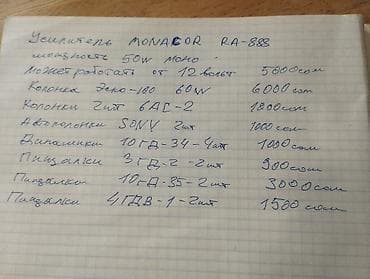 Усилитель MONACOR RA-888
мощность 50W моно
Может работать от 12 вольт 5000 сом
Колонка Эхо-100 60W 6000 сом
Колонки 2шт 6АС-2 1800 сом
Автоколонки SONY 2шт 1000 сом
Динамики 10ГД-34-4шт 1000 сом
Пищалки 3ГД-2-2шт 900 сом
Пищалки 10ГД-35-2шт 3000 сом
Пищалки 4ГДВ-1-2шт 1500 сом